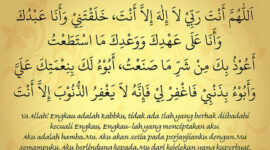 اَللَّهُمَّ أَنْتَ رَبِّيْ لاَ إِلَهَ إِلاَّ أَنْتَ، خَلَقْتَنِيْ وَأَنَا عَبْدُكَ
وَأَنَا عَلَى عَهْدِكَ وَوَعْدِكَ مَا اسْتَطَعْتُ
أَعُوْذُ بِكَ مِنْ شَرِّ مَا صَنَعْتُ، أَبُوْءُ لَكَ بِنِعْمَتِكَ عَلَيَّ
وَأَبُوْءُ بِذَنْبِيْ فَاغْفِرْ لِيْ فَإِنَّهُ لاَ يَغْفِرُ الذُّنُوْبَ إِلاَّ أَنْتَ
Ya Allah! Engkau adalah Rabbku, tidak ada Ilah yang berhak diibadahi
kecuali Engkau, Engkau-lah yang menciptakan aku.
Aku adalah hamba-Mu. Aku akan setia pada perjanjianku dengan-Mu
semampuku. Aku berlindung kepada-Mu dari kejelekan yang kuperbuat.